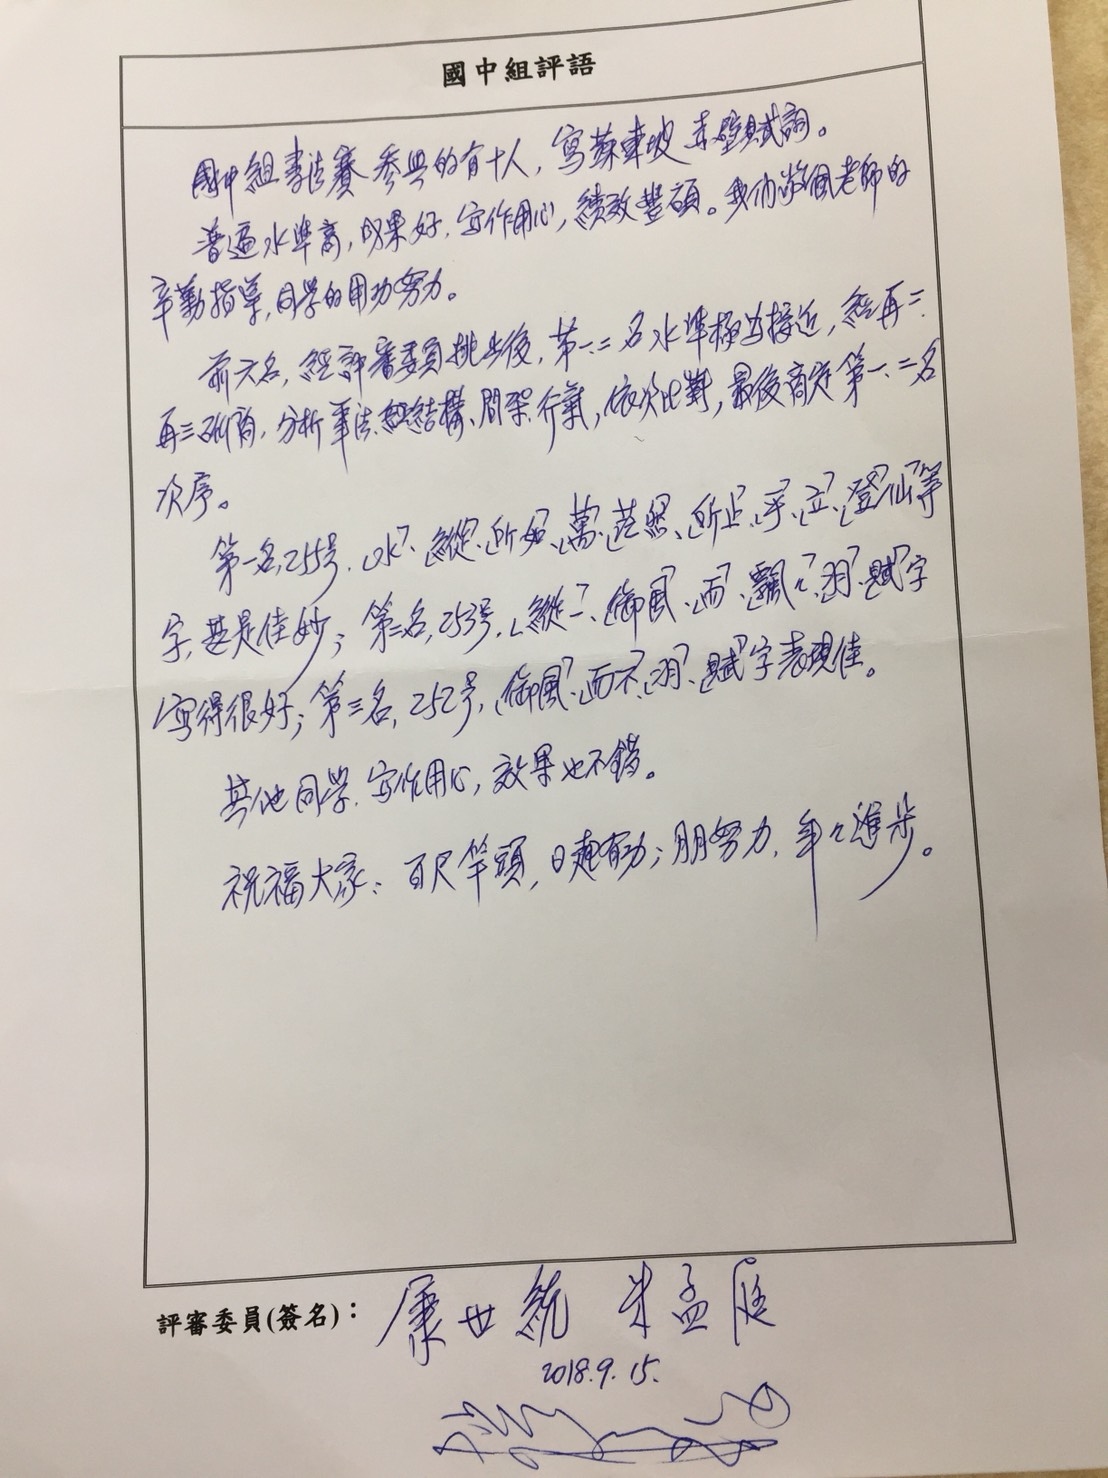 國中組評語
國中組書法賽參與的有十人，寫蘇東坡赤壁賦詞。
普遍水準高，成果好，寫作用心，績效豐碩。我們敬佩老師的
辛勤指導，同學的用功努力。
前六名，經評審委員挑出後，第一、二名水準極为接近，經再三
再三研商，分析筆法、結構、間架、行氣，依次比對，最後商定第一、二名
次序。
第一名，255号，「水」、「縱」、「所如」、「萬」、「茫然」、「所止」、「乎」、「立」、「登仙」等
字，甚是佳妙；第二名，253号，「縱一」、「御風」、「而」、「飄々」、「羽」、「賦」字
寫得很好；第三名，252号，「御風」、「而不」、「羽」、「賦」字表現佳。
其他同學，寫作用心，效果也不錯。
祝福大家：百尺竿頭，日起有功；朋努力，年々進步。
評審委員(簽名)：康世統 朱孟庭
2018.9.15.